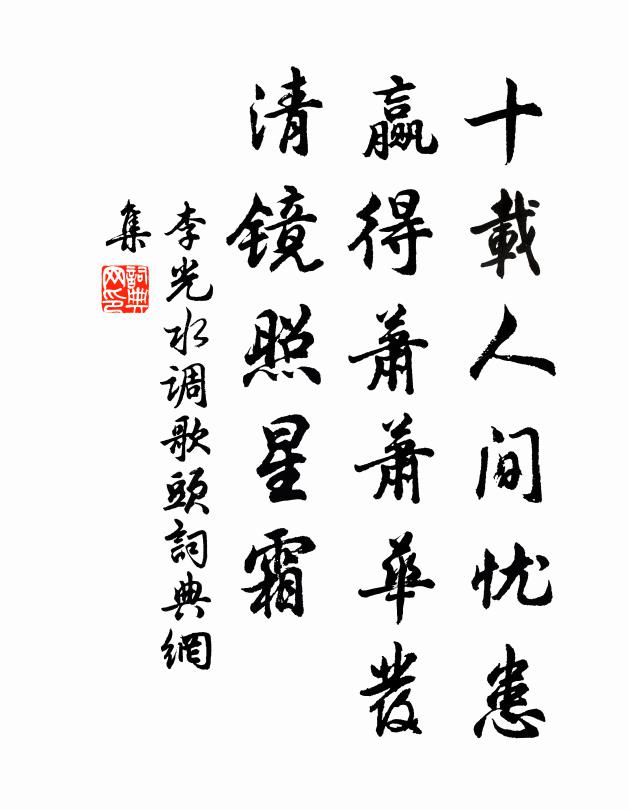 十載人间忧患
赢得萧萧华發
清镜照星霜
李光水调歌頭詞典網
集
詞典
网印